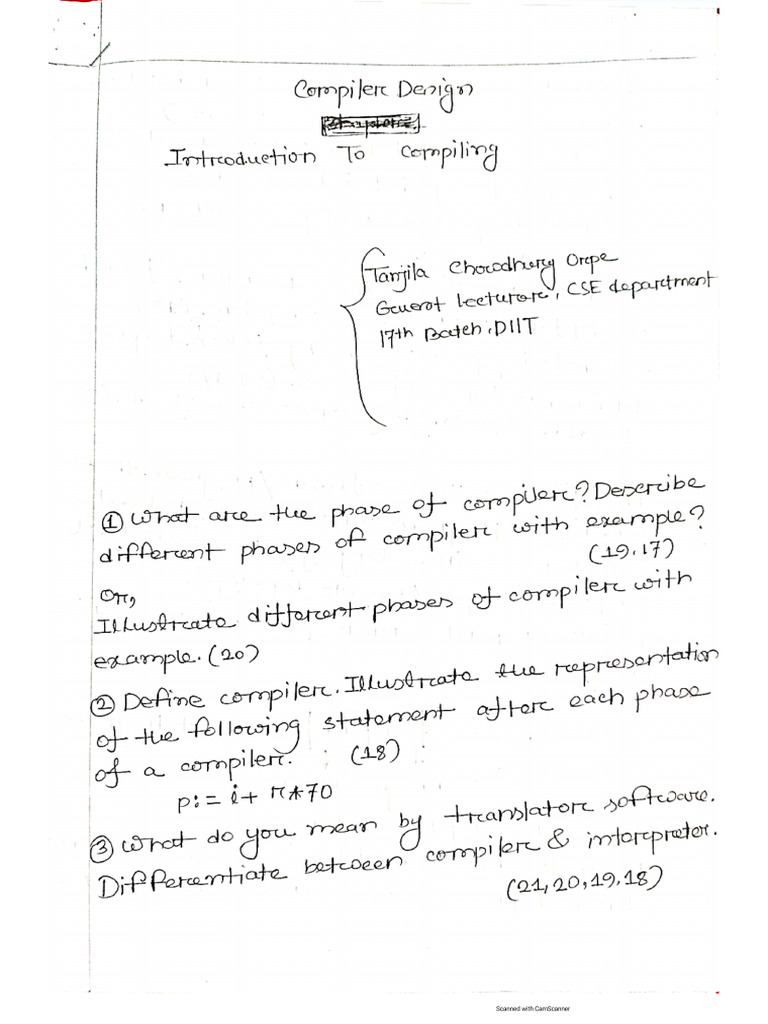 Compiler Design
Introduction To Compiling
Tanjila Chowdhury Orpe
Guest Lecturer, CSE department
17th Batch, DIIT
① What are the phase of compiler? Describe
different phases of compiler with example?
(19, 17)
Or,
Illustrate different phases of compiler with
example. (20)
② Define compiler. Illustrate the representation
of the following statement after each phase
of a compiler. (18)
p:= i+ r*70
③ What do you mean by translator software.
Differentiate between compiler & interpreter.
(21, 20, 19, 18)
Scanned with CamScanner